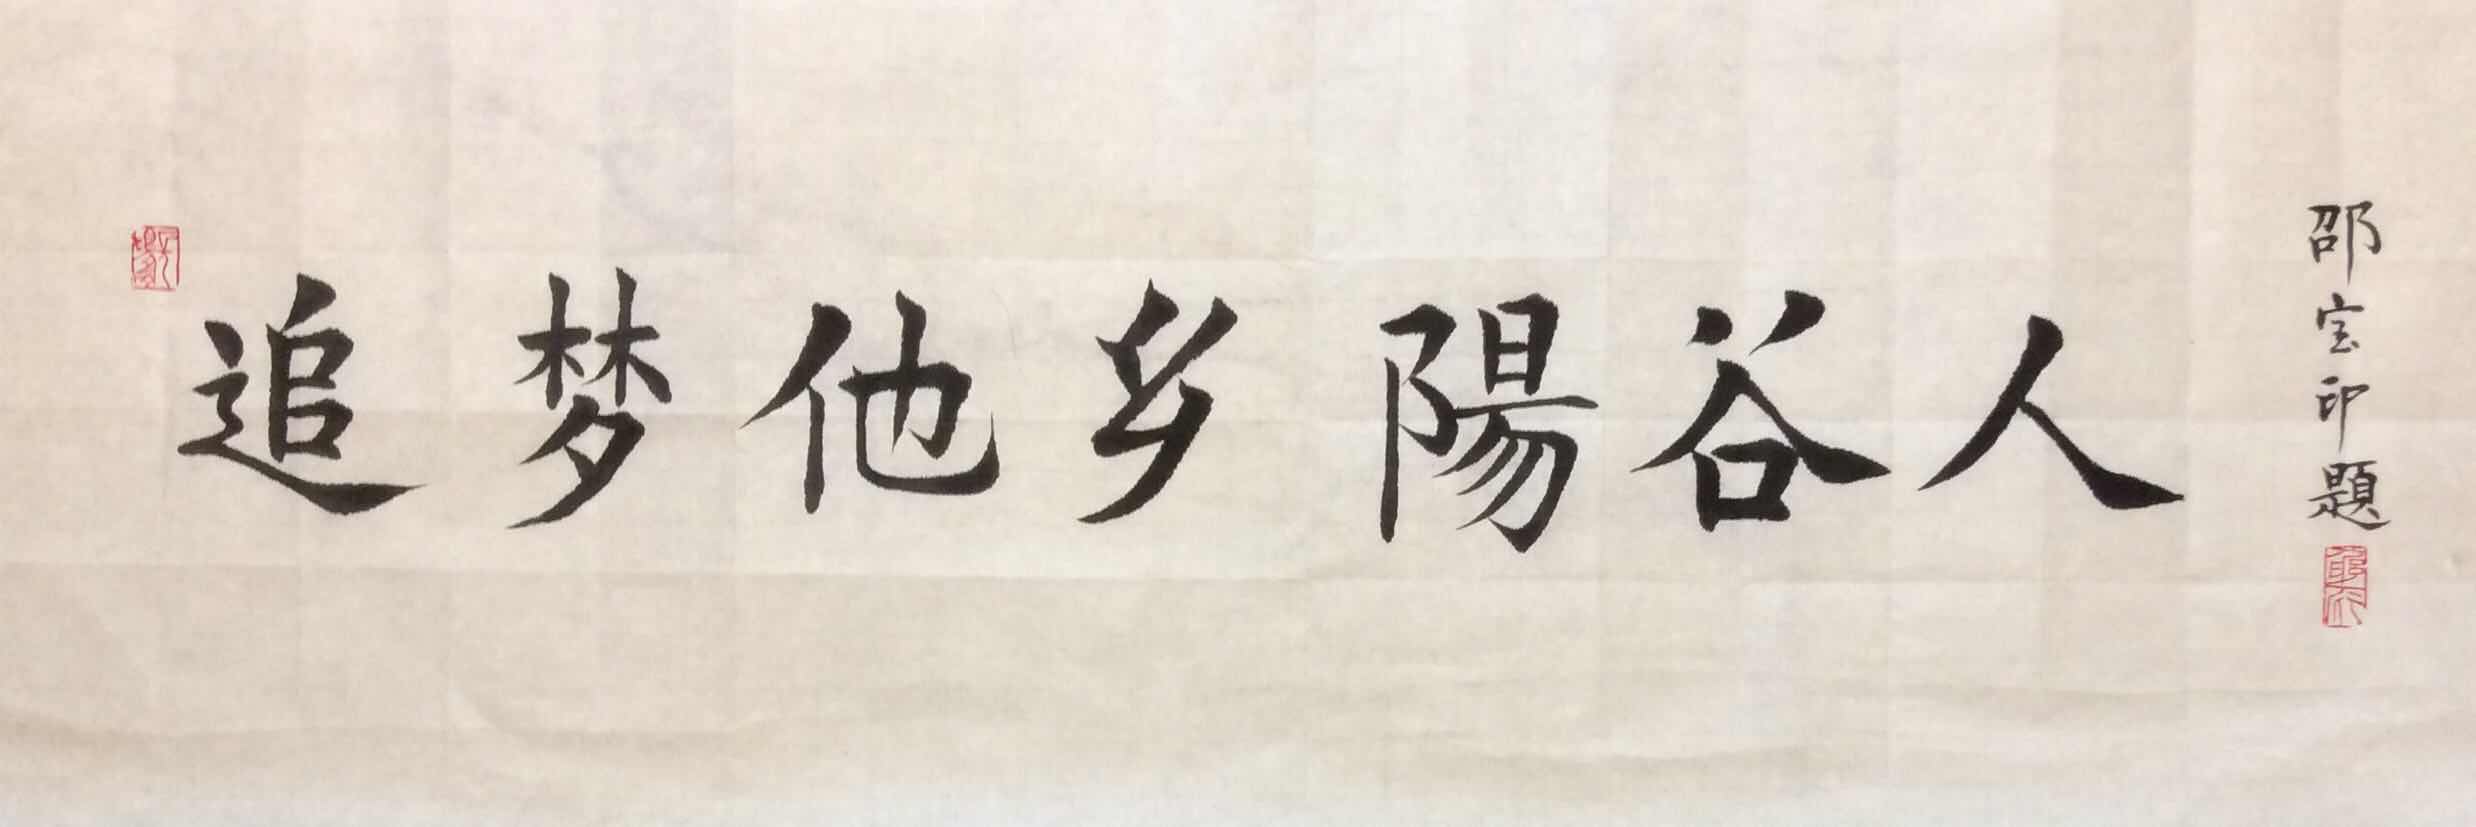 追梦他乡陽谷人
邵宝印題